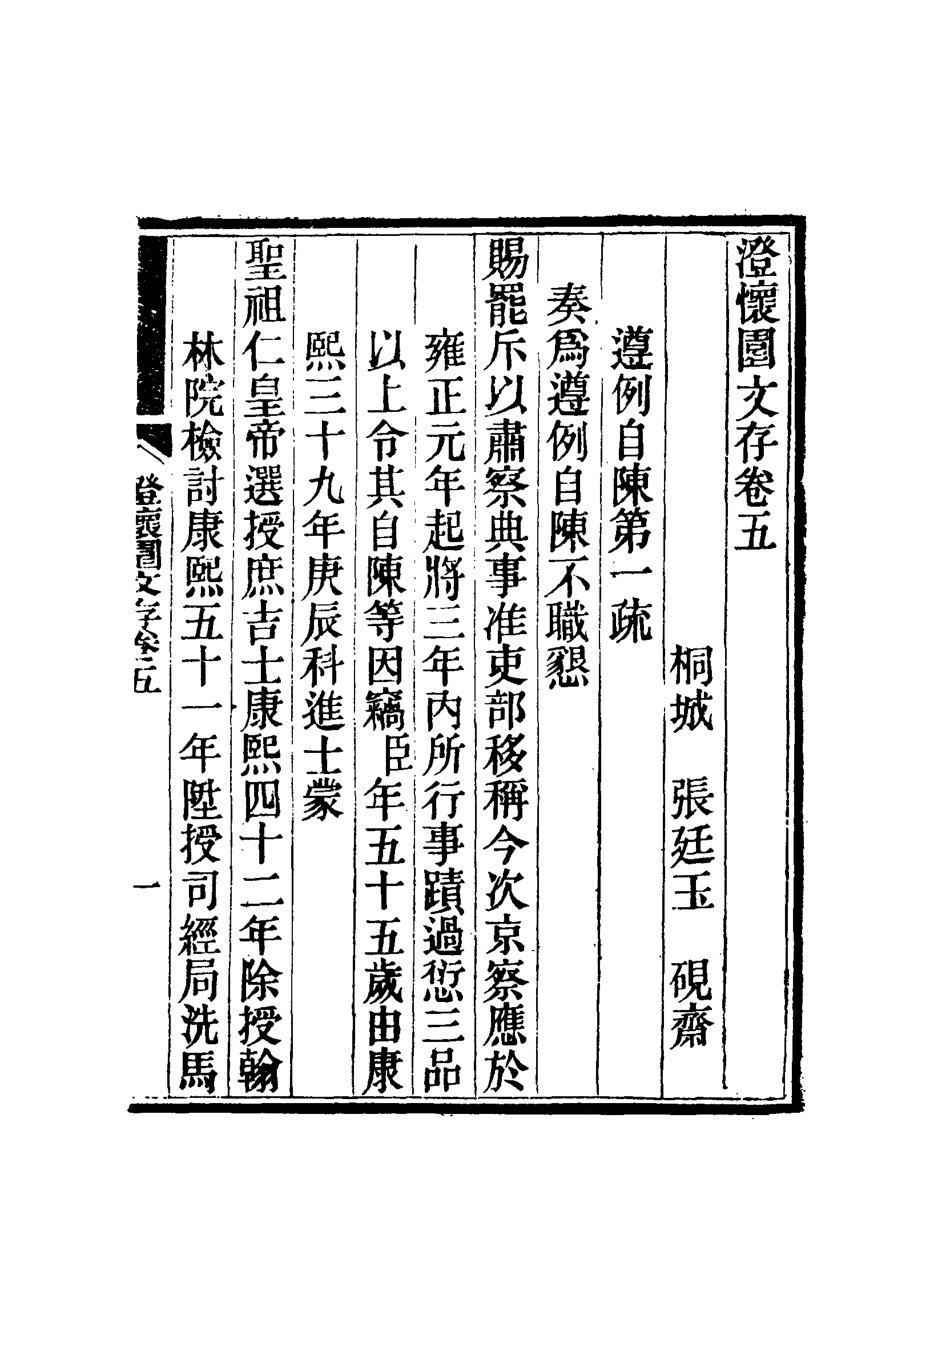 澄懷園文存卷五
桐城 張廷玉 硯齋
遵例自陳第一疏
奏爲遵例自陳不職懇
賜罷斥以肅察典事准吏部移稱今次京察應於
雍正元年起將三年內所行事蹟過愆三品
以上令其自陳等因竊臣年五十五歲由康
熙三十九年庚辰科進士蒙
聖祖仁皇帝選授庶吉士康熙四十二年除授翰
林院檢討康熙五十一年陞授司經局洗馬
澄懷園文存卷五
一